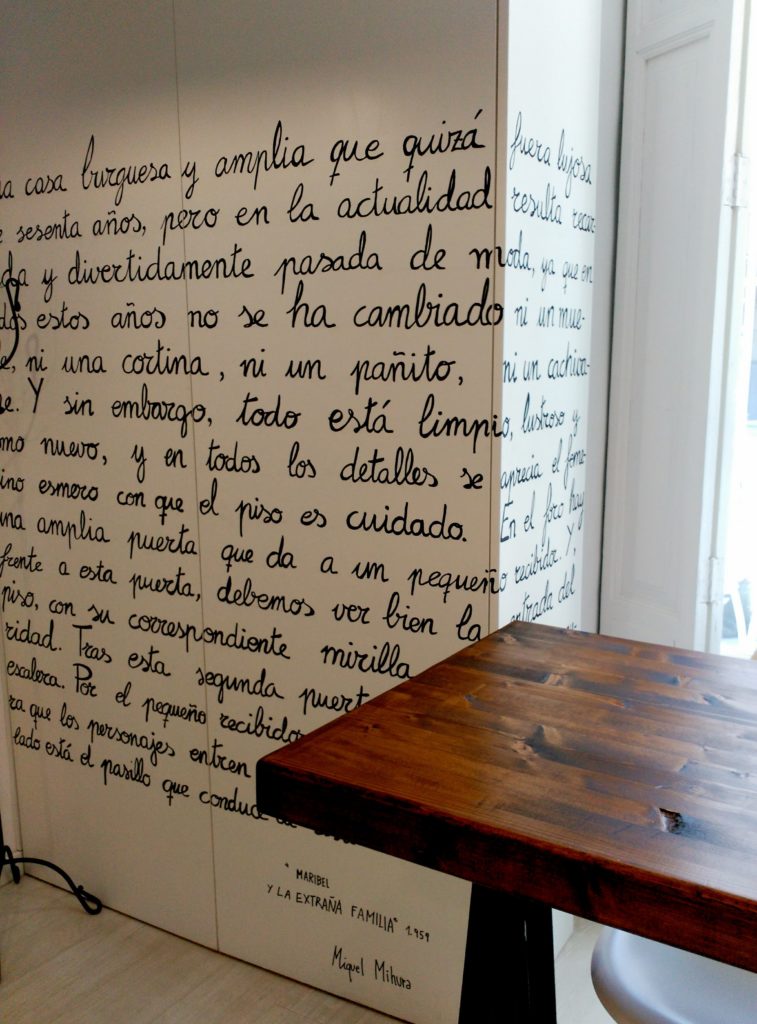 casa burguesa y amplia que quizá fuera lujosa
sesenta años, pero en la actualidad resulta recar-
da y divertidamente pasada de moda, ya que en
estos años no se ha cambiado ni un mue-
ni una cortina, ni un pañito, ni un cachiva-
Y sin embargo, todo está limpio, lustroso y
mo nuevo, y en todos los detalles se aprecia el feme-
ino esmero con que el piso es cuidado. En el foro hay
una amplia puerta que da a un pequeño recibidor. Y,
frente a esta puerta, debemos ver bien la entrada del
piso, con su correspondiente mirilla
ridad. Tras esta segunda
escalera. Por el pequeño
ra que los personajes entren
lado está el pasillo que conduce
"MARIBEL
Y LA EXTRAÑA FAMILIA" 1959
Miguel Mihura